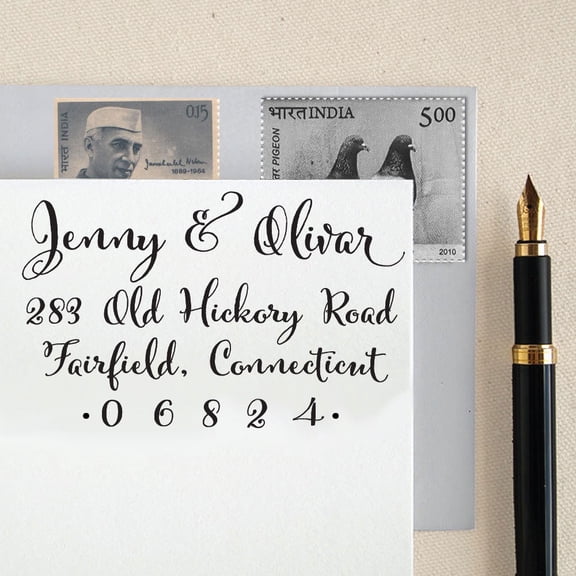 भारत INDIA
0.15
Jawaharlal Nehru
1889-1964
भारत INDIA
5.00
PIGEON
2010
Jenny & Olivar
283 Old Hickory Road
Fairfield, Connecticut
·0 6 8 2 4·